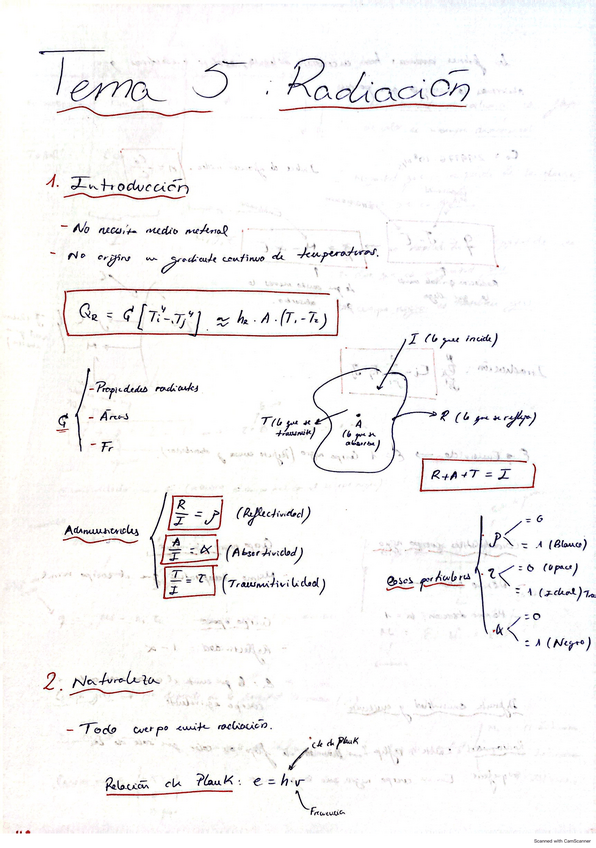 Tema 5 : Radiación
1. Introducción
- No necesita medio material
- No origina un gradiente continuo de temperaturas.
QR = G [Ti⁴ - Tj⁴] ≈ hr · A · (T1 - T2)
I (lo que incide)
G
- Propiedades radiantes
- Áreas
- Fr
T (lo que se transmite)
A (lo que se absorbe)
R (lo que se refleja)
R+A+T = I
Adimensionales
R/I = ρ (Reflectividad)
A/I = α (Absortividad)
T/I = τ (Transmitivilidad)
Casos particulares
ρ = 0
= 1 (Blanco)
τ = 0 (Opaco)
= 1 (Ideal) Tra
α = 0
= 1 (Negro)
2. Naturaleza
- Todo cuerpo emite radiación.
cte de Plank
Relación de Plank: e = h·ν
Frecuencia
Scanned with CamScanner